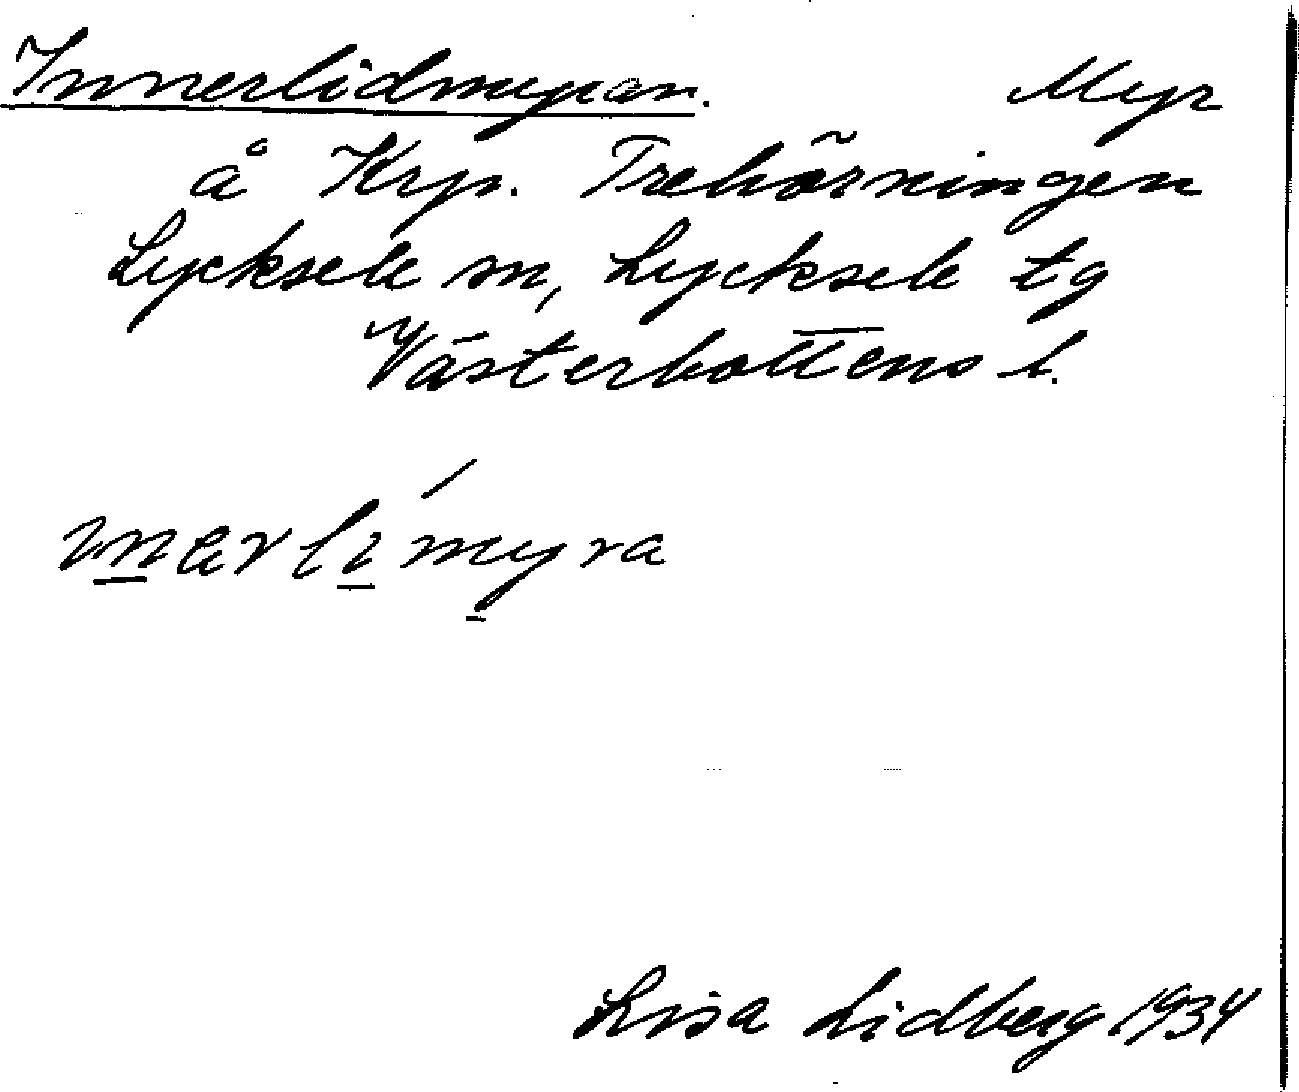 Innerlidmyran. Myr
å Krp. Trehörningen
Lycksele sn, Lycksele tg
Västerbottens l.
ın̲ərlı̲́my̲ra
Lisa Lidberg 1934